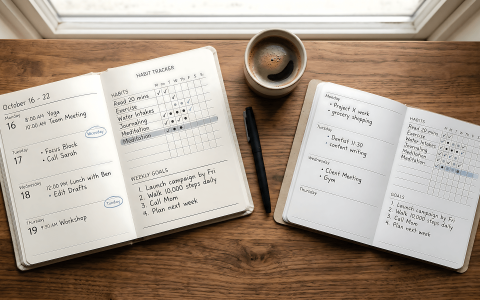 October 16 - 22
Monday
16 8:00 AM Yoga
10:00 AM Team Meeting
Tuesday
17 • Focus Block
• Call Sarah
Wednesday
18 12:00 PM Lunch with Ben
• Edit Drafts
Thursday
19 Workshop
HABIT TRACKER
HABITS
Read 20 mins
Exercise
Water Intakes
Journaling
Meditation
Meditation
WEEKLY GOALS
1. Launch campaign by Fri
2. Walk 10,000 steps daily
3. Call Mom
4. Plan next week
Monday
• Project X work
• grocery shopping
Tuesday
• Dentist 11:30
• content writing
Wednesday
• Client Meeting
• Gym
Thursday
HABITS
Read 20 mins
Exercise
Water Intakes
Journaling
Meditation
GOALS
1. Launch campaign by Fri
2. Walk 10,000 steps daily
3. Call Mom
4. Plan next week